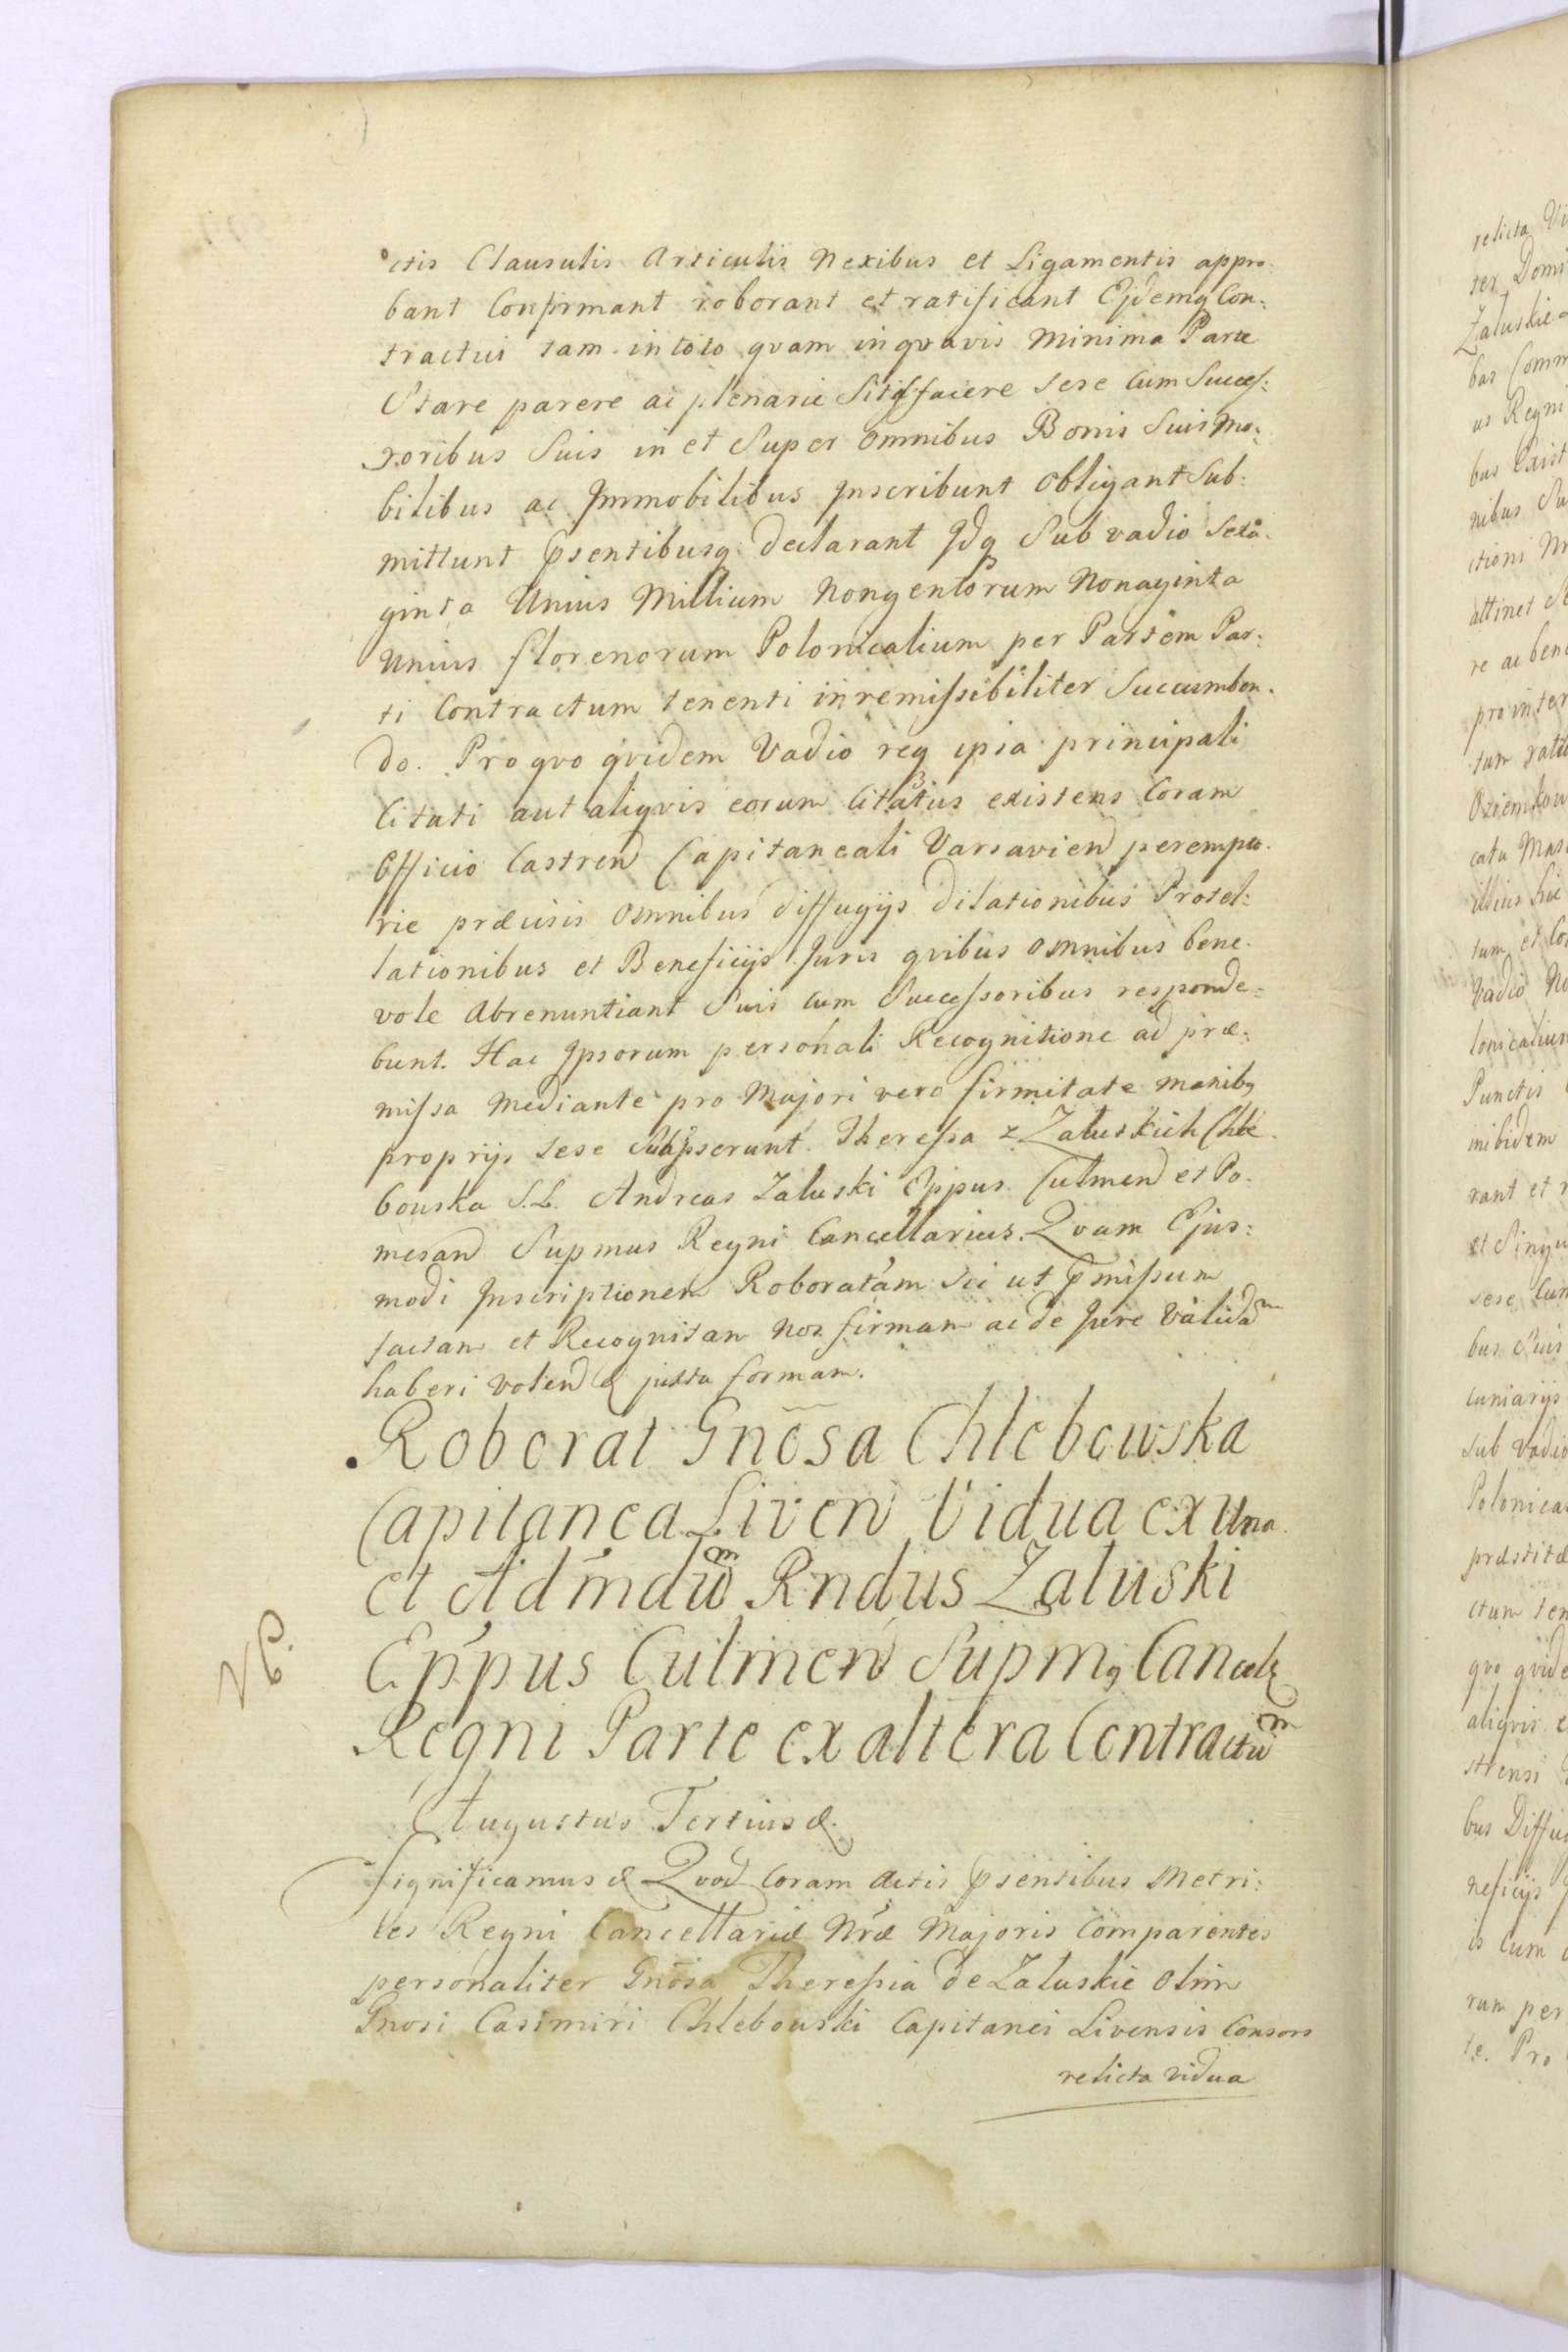 ctis Clausulis Articulis Nexibus et Ligamentis appro:
bant Confirmant roborant et ratificant Ejdemq Con:
tractui tam in toto qvam in qvavis Minima Parte
Stare parere ac plenarie Sitisfacere sese Cum Succes:
soribus Suis in et Super omnibus Bonis Suis Mo:
bilibus ac Immobilibus Inscribunt Obligant Sub:
mittunt Psentibusq declarant Idq Sub vadio Sexa:
ginta Unius Millium Nongentorum Nonaginta
Unius florenorum Polonicalium per Partem Par:
ti Contractum tenenti inremissibiliter Succumben:
do. Pro qvo qvidem Vadio req ipsa principali
Citati aut aliqvis eorum Citatus existens Coram
Officio Castren Capitaneali Varsavien perempto:
rie præcisis Omnibus diffugijs dilationibus Protel:
lationibus et Beneficijs Juris qvibus omnibus bene:
vole Abrenuntiant Suis cum Successoribus responde:
bunt. Hac Ipsorum personali Recognitione ad præ:
missa Mediante pro Majori vero firmitate manibq
proprijs sese Subpserunt. Theressa z Zaluskich Chle:
bouska S.L. Andreas Zaluski Eppus Culmen et Po:
mesan Supmus Regni Cancellarius. Qvam Ejus:
modi Inscriptionem Roboratam sei ut Pmissum
factam et Recognitam Nos firmam ac de Jure Validam
haberi volen & juxta formam.
Roborat Gnosa Chlebowska
Capitanea Liven Vidua ex Una
et Admdum Rndus Zaluski
Eppus Culmen Supmq Cancel
Regni Parte ex altera Contractum
NP.
Augustus Tertius &.
Significamus & Qvod Coram Actis Psentibus Metri:
ces Regni Cancellariæ Nræ Majoris Comparentes
personaliter Gnosa Theressia de Zaluskie Olim
Gnosi Casimiri Chlebouski Capitanei Livensis Consors
relicta vidua
relicta Vi
ter Domi
Zaluskie
bas Comm
us Regni
bus Exist
nibus Su
ctioni
attinet
re ac bene
pro inter
tum
catu Mas
illius
tum et Co
Vadio No
lonicalium
Punctis
inibidem
rant et r
et Singu
sese Cum
bus Suis
cuniarijs
Sub vadio
Polonica
præstitæ
ctum ten
qvo qvide
aliqvis e
strensi
bus Diffug
neficijs
is cum
rum per
te. Pro